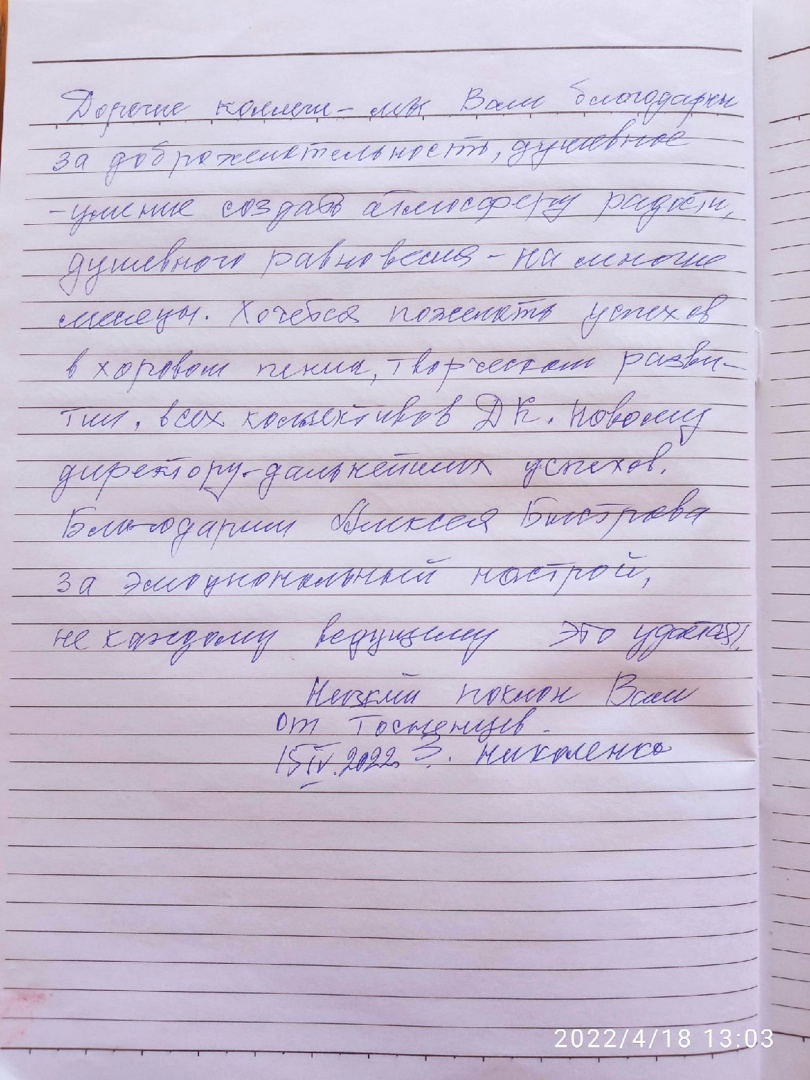 Дорогие коллеги – мы Вам благодарны
за доброжелательность, душевное
- умение создать атмосферу радости,
душевного равновесия – на многие
месяцы. Хочется пожелать успехов
в хоровом пении, творческом разви-
тии, всех коллективов ДК. Новому
директору – дальнейших успехов.
Благодарим Алексея Быстрова
за эмоциональный настрой,
не каждому ведущему это удается!
Низкий поклон Вам
от Тосненцев.
15 IV. 2022 З. Николенко
2022/4/18 13:03